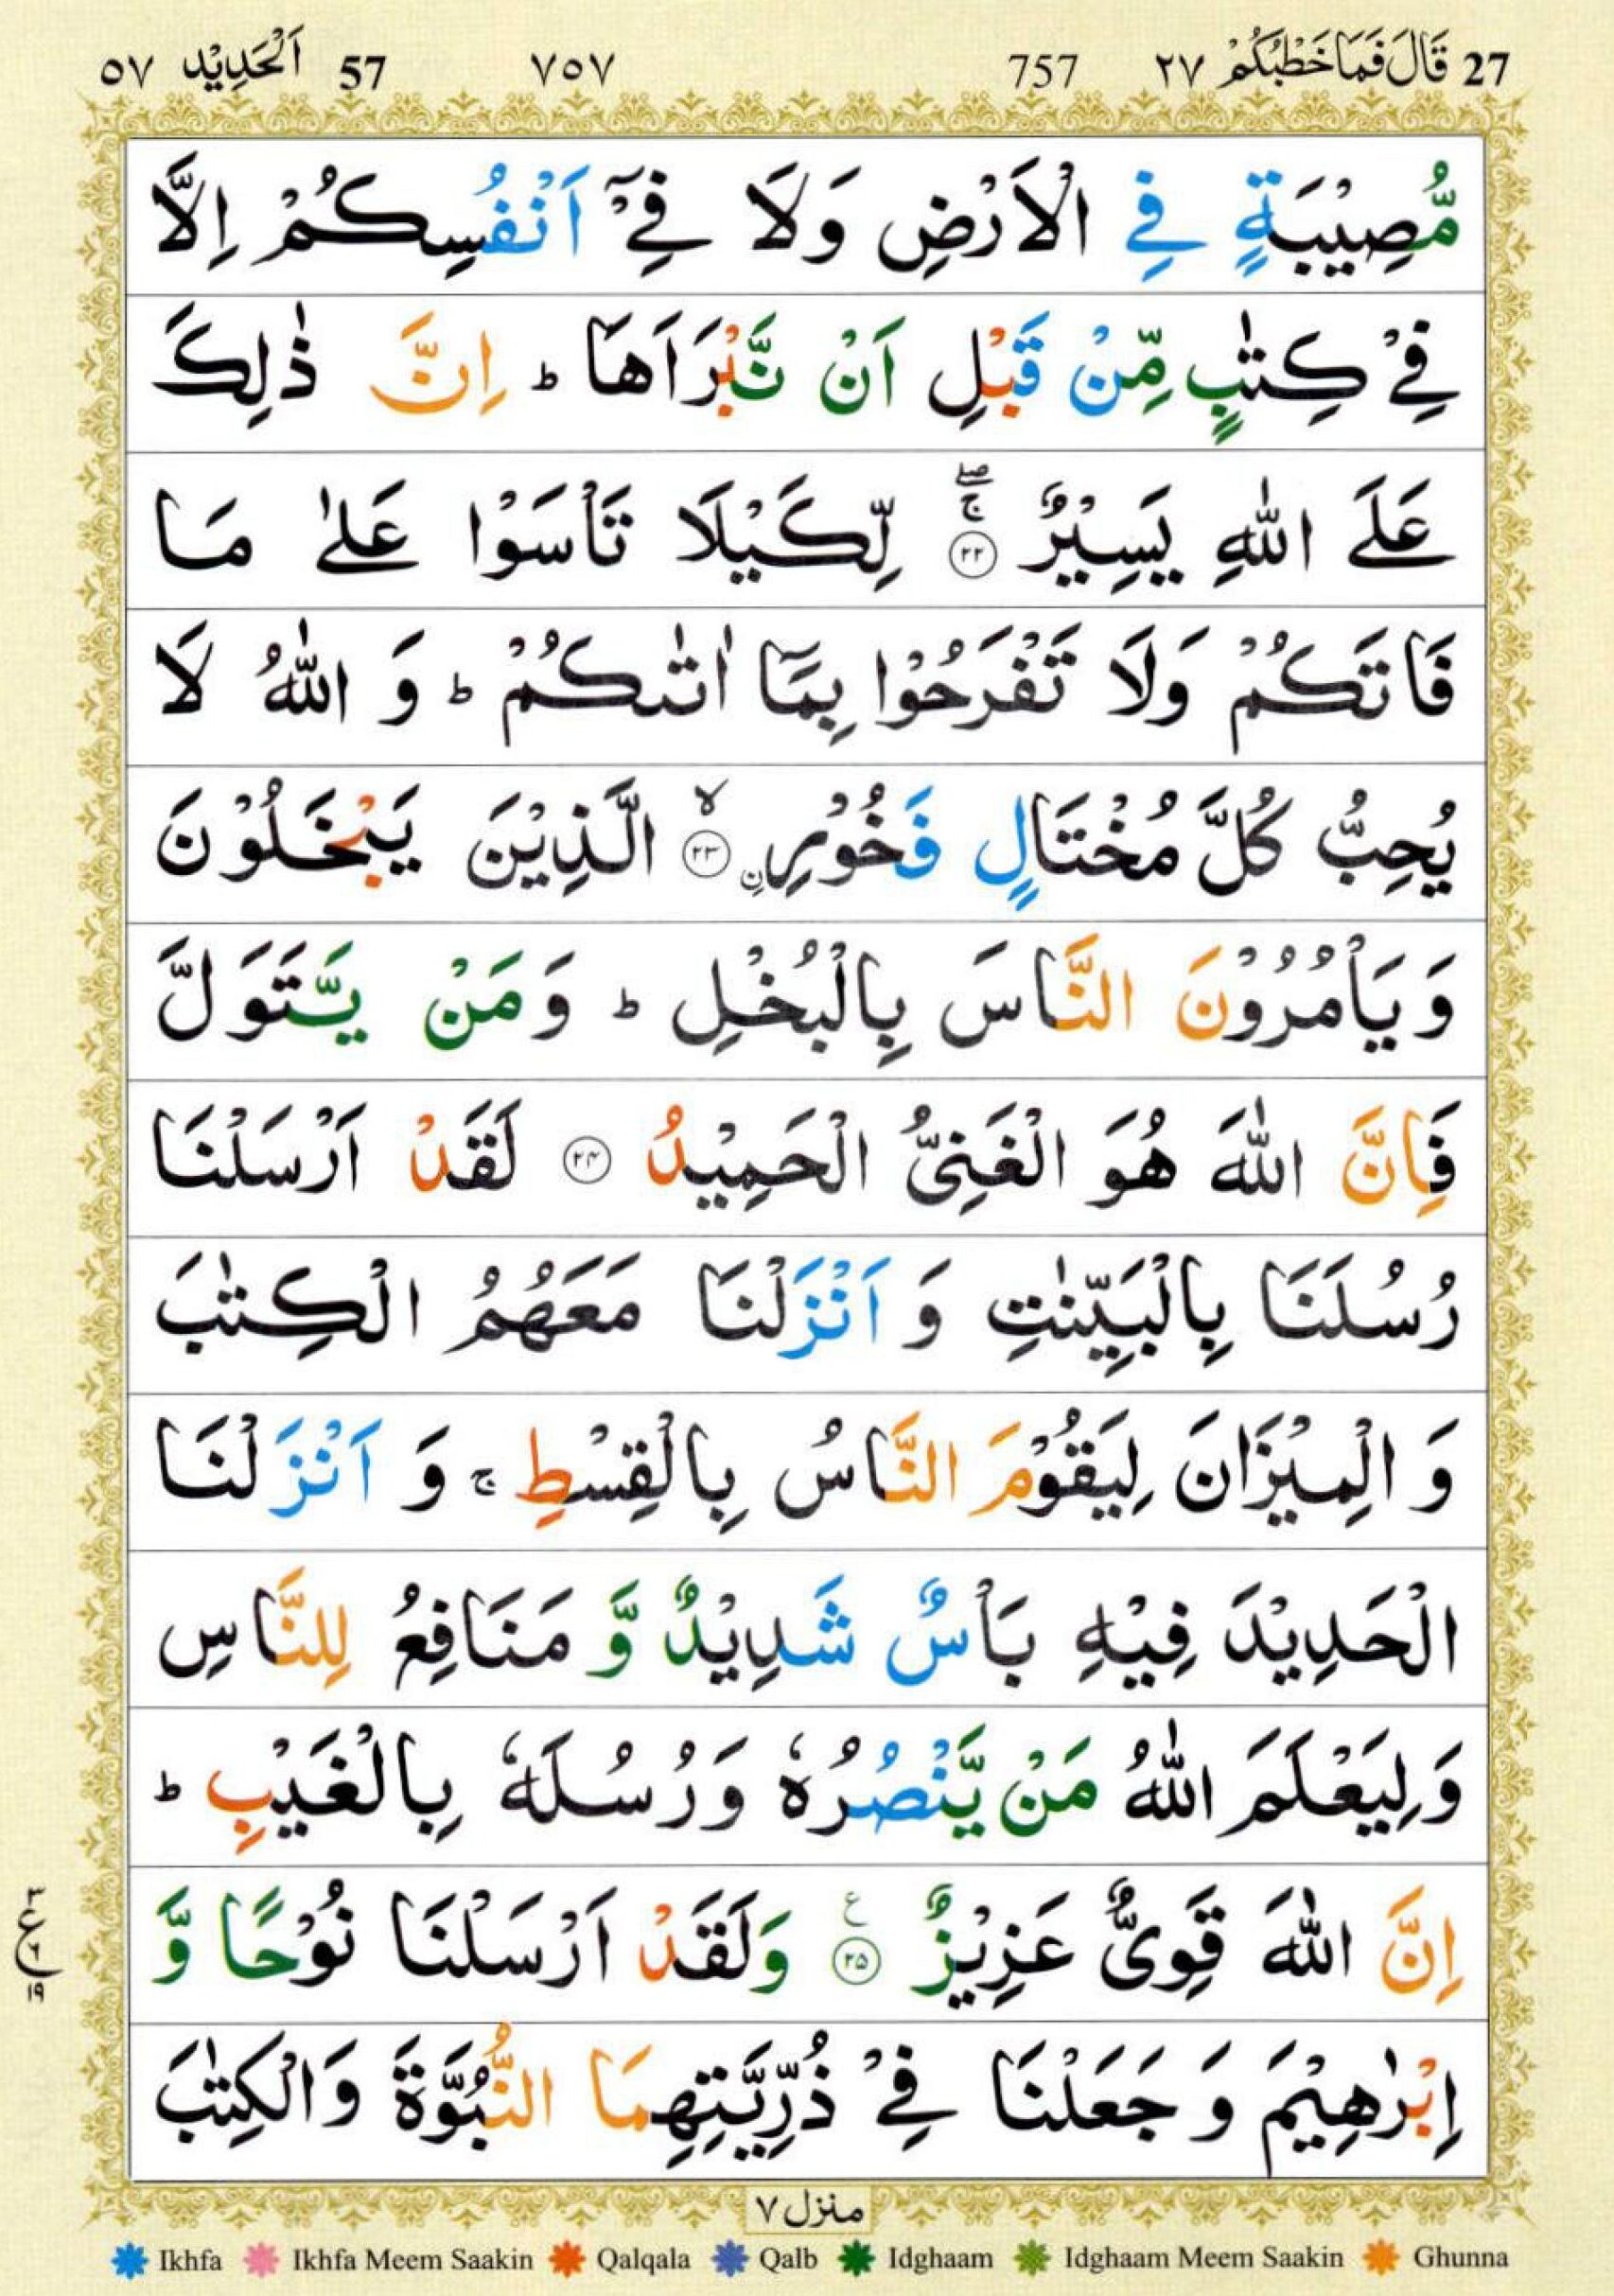 27 قَالَ فَمَا خَطْبُكُمْ ٢٧ 757 ٧٥٧ 57 اَلْحَدِيْد ٥٧
مُّصِيْبَةٍ فِي الْاَرْضِ وَلَا فِيْٓ اَنْفُسِكُمْ اِلَّا
فِيْ كِتٰبٍ مِّنْ قَبْلِ اَنْ نَّبْرَاَهَا ؕ اِنَّ ذٰلِكَ
عَلَى اللّٰهِ يَسِيْرٌ ۚۖ ﴿٢٢﴾ لِّكَيْلَا تَاْسَوْا عَلٰى مَا
فَاتَكُمْ وَلَا تَفْرَحُوْا بِمَآ اٰتٰىكُمْ ؕ وَ اللّٰهُ لَا
يُحِبُّ كُلَّ مُخْتَالٍ فَخُوْرِ ۙ ﴿٢٣﴾ ن۪الَّذِيْنَ يَبْخَلُوْنَ
وَ يَاْمُرُوْنَ النَّاسَ بِالْبُخْلِ ؕ وَمَنْ يَّتَوَلَّ
فَاِنَّ اللّٰهَ هُوَ الْغَنِيُّ الْحَمِيْدُ ﴿٢٤﴾ لَقَدْ اَرْسَلْنَا
رُسُلَنَا بِالْبَيِّنٰتِ وَ اَنْزَلْنَا مَعَهُمُ الْكِتٰبَ
وَ الْمِيْزَانَ لِيَقُوْمَ النَّاسُ بِالْقِسْطِ ۚ وَ اَنْزَلْنَا
الْحَدِيْدَ فِيْهِ بَاْسٌ شَدِيْدٌ وَّ مَنَافِعُ لِلنَّاسِ
وَلِيَعْلَمَ اللّٰهُ مَنْ يَّنْصُرُهٗ وَرُسُلَهٗ بِالْغَيْبِ ؕ
اِنَّ اللّٰهَ قَوِيٌّ عَزِيْزٌ ﴿٢٥﴾ ع وَلَقَدْ اَرْسَلْنَا نُوْحًا وَّ
٣ ع ٦ ١٩
اِبْرٰهِيْمَ وَ جَعَلْنَا فِيْ ذُرِّيَّتِهِمَا النُّبُوَّةَ وَالْكِتٰبَ
منزل ٧
Ikhfa Ikhfa Meem Saakin Qalqala Qalb Idghaam Idghaam Meem Saakin Ghunna